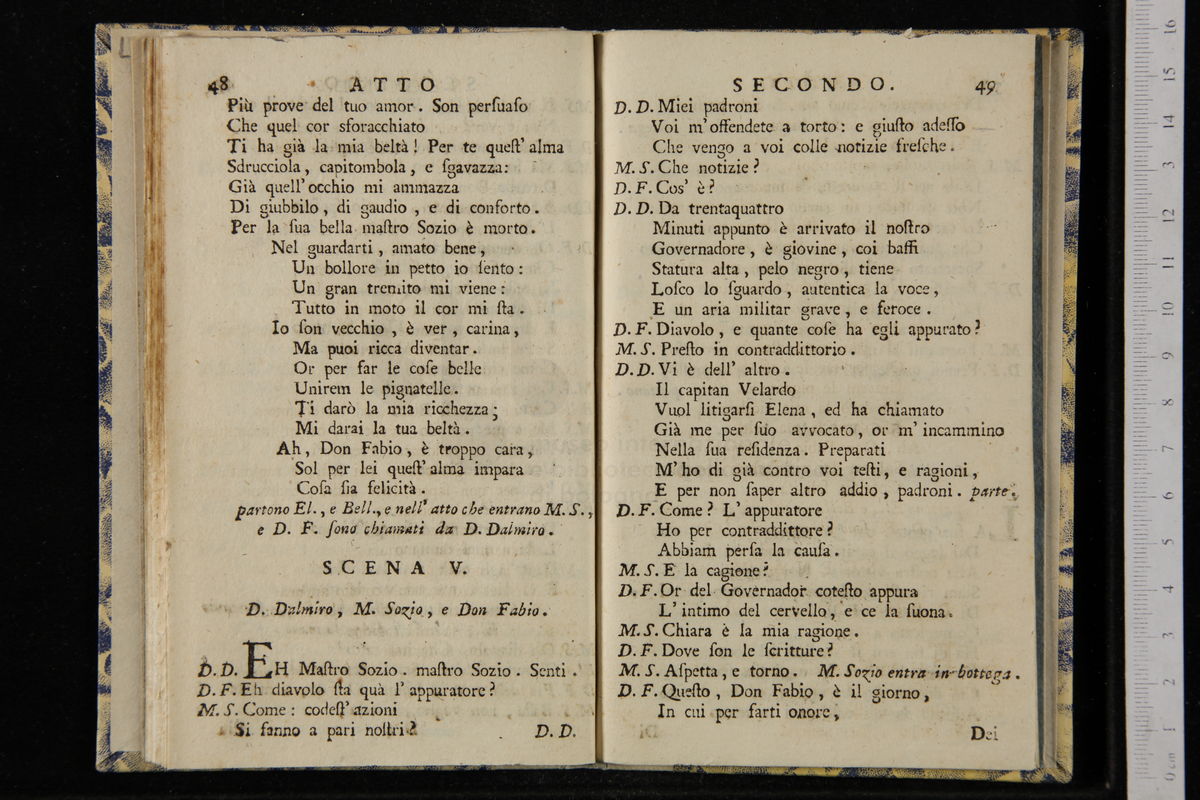 48 ATTO
Più prove del tuo amor. Son perſuaſo
Che quel cor sforacchiato
Ti ha già la mia beltà! Per te queſt' alma
Sdrucciola, capitombola, e ſgavazza:
Già quell' occhio mi ammazza
Di giubbilo, di gaudio, e di conforto.
Per la ſua bella maſtro Sozio è morto.
Nel guardarti, amato bene,
Un bollore in petto io ſento:
Un gran tremito mi viene:
Tutto in moto il cor mi ſta.
Io ſon vecchio, è ver, carina,
Ma puoi ricca diventar.
Or per far le coſe belle
Unirem le pignatelle.
Ti darò la mia ricchezza;
Mi darai la tua beltà.
Ah, Don Fabio, è troppo cara,
Sol per lei queſt' alma impara
Coſa ſia felicità.
partono El., e Bell., e nell' atto che entrano M. S.,
e D. F. ſono chiamati da D. Dalmiro.
SCENA V.
D. Dalmiro, M. Sozio, e Don Fabio.
D. D. EH Maſtro Sozio. maſtro Sozio. Senti.
D. F. Eh diavolo ſta quà l' appuratore?
M. S. Come: codeſt' azioni
Si fanno a pari noſtri?
D. D.
SECONDO. 49
D. D. Miei padroni
Voi m' offendete a torto: e giuſto adeſſo
Che vengo a voi colle notizie freſche.
M. S. Che notizie?
D. F. Cos' è?
D. D. Da trentaquattro
Minuti appunto è arrivato il noſtro
Governadore, è giovine, coi baffi
Statura alta, pelo negro, tiene
Loſco lo ſguardo, autentica la voce,
E un aria militar grave, e feroce.
D. F. Diavolo, e quante coſe ha egli appurato?
M. S. Preſto in contraddittorio.
D. D. Vi è dell' altro.
Il capitan Velardo
Vuol litigarſi Elena, ed ha chiamato
Già me per ſuo avvocato, or m' incammino
Nella ſua reſidenza. Preparati
M' ho di già contro voi teſti, e ragioni,
E per non ſaper altro addio, padroni. parte.
D. F. Come? L' appuratore
Ho per contraddittore?
Abbiam perſa la cauſa.
M. S. E la cagione?
D. F. Or del Governador coteſto appura
L' intimo del cervello, e ce la ſuona.
M. S. Chiara è la mia ragione.
D. F. Dove ſon le ſcritture?
M. S. Aſpetta, e torno. M. Sozio entra in bottega.
D. F. Queſto, Don Fabio, è il giorno,
In cui per farti onore,
Dei